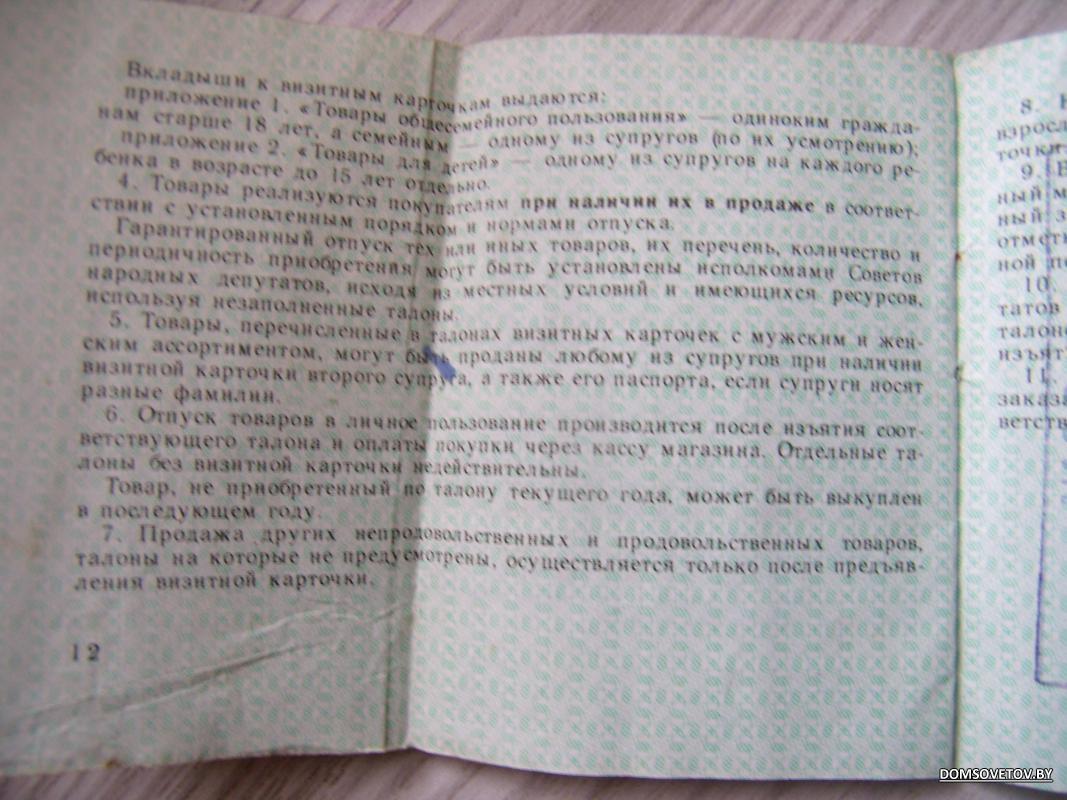 Вкладыши к визитным карточкам выдаются:
приложение 1. «Товары общесемейного пользования» — одиноким гражда-
нам старше 18 лет, а семейным — одному из супругов (по их усмотрению);
приложение 2. «Товары для детей» — одному из супругов на каждого ре-
бенка в возрасте до 15 лет отдельно.
4. Товары реализуются покупателям при наличии их в продаже в соответ-
ствии с установленным порядком и нормами отпуска.
Гарантированный отпуск тех или иных товаров, их перечень, количество и
периодичность приобретения могут быть установлены исполкомами Советов
народных депутатов, исходя из местных условий и имеющихся ресурсов,
используя незаполненные талоны.
5. Товары, перечисленные в талонах визитных карточек с мужским и жен-
ским ассортиментом, могут быть проданы любому из супругов при наличии
визитной карточки второго супруга, а также его паспорта, если супруги носят
разные фамилии.
6. Отпуск товаров в личное пользование производится после изъятия соот-
ветствующего талона и оплаты покупки через кассу магазина. Отдельные та-
лоны без визитной карточки недействительны.
Товар, не приобретенный по талону текущего года, может быть выкуплен
в последующем году.
7. Продажа других непродовольственных и продовольственных товаров,
талоны на которые не предусмотрены, осуществляется только после предъяв-
ления визитной карточки.
12
8.
взросл
точки
9. В
ный м
ный з
отмет
ной п
10.
татов
талон
изъят
11.
заказа
ветств
DOMSOVETOV.BY